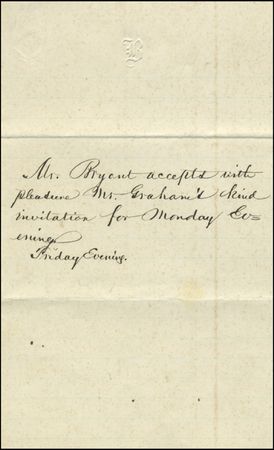 Mr. Bryant accepts with
pleasure Mr. Graham's kind
invitation for Monday Ev=
ening.
Friday Evening.